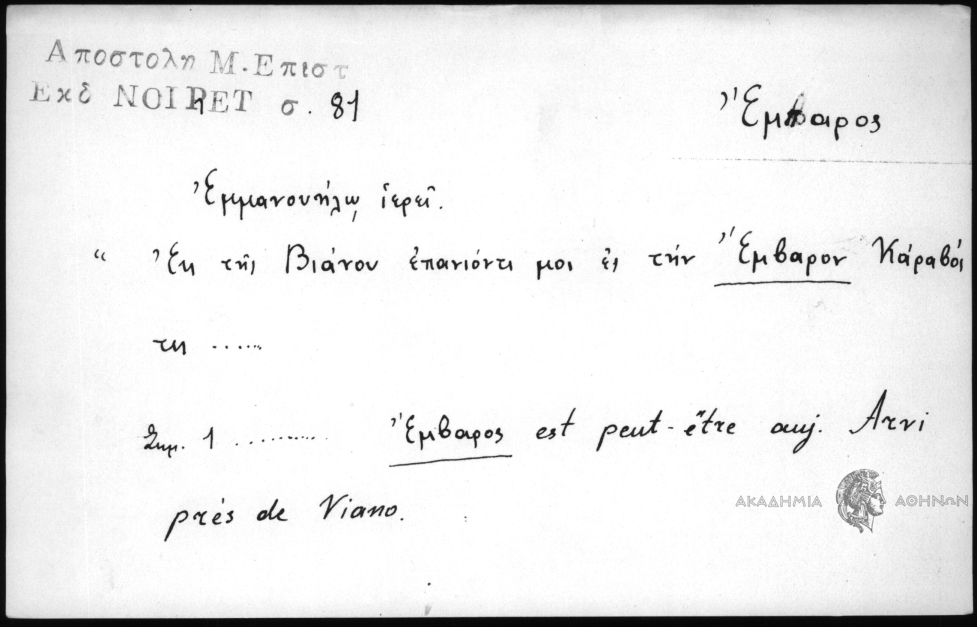 Αποστολη Μ. Επιστ
Εκδ NOIRET σ. 81
Ἔμβαρος
Ἐμμανουήλῳ ἱερεῖ.
“ Ἐκ τῆς Βιάνου ἐπανιόντι μοι ἐς τὴν Ἔμβαρον Κάραβός
τις ......
Σημ. 1 .......... Ἔμβαρος est peut-être auj. Arvi
près de Viano.
ΑΚΑΔΗΜΙΑ ΑΘΗΝΩΝ